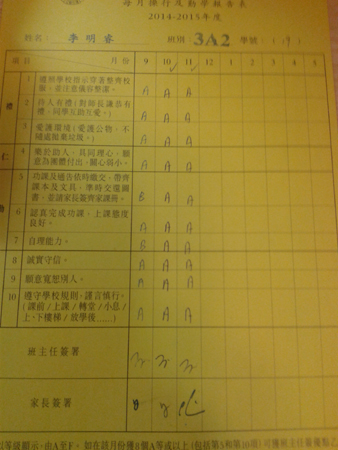 每月操行及勤學報告表
2014-2015年度
姓名: 李明睿 班別 3A2 學號:
項目 月份 9 10 11
禮
1 遵照學校指示穿著整齊校
服,並注意儀容整潔。 A A A
2 待人有禮(對師長謙恭有
禮,同學互助互愛。) A A A
3 愛護環境(愛護公物,不
隨處拋棄垃圾。) A A A
仁
4 樂於助人,具同理心,願
意為團體付出,關心弱小。 A A A
5 功課及通告依時繳交,帶齊
課本及文具,準時交還圖
書,並請家長簽齊家課冊。 B A A
6 認真完成功課,上課態度
良好。 A A A
7 自理能力。 B A A
8 誠實守信。 A A A
9 願意寬恕別人。 A A A
10 遵守學校規則,謹言慎行。
(課前/上課/轉堂/小息/
上、下樓梯/放學後......) A A A
班主任簽署
家長簽署
等級顯示,由A至F。如在該月份獲8個A等或以上(包括第5和第10項)可獲班主任